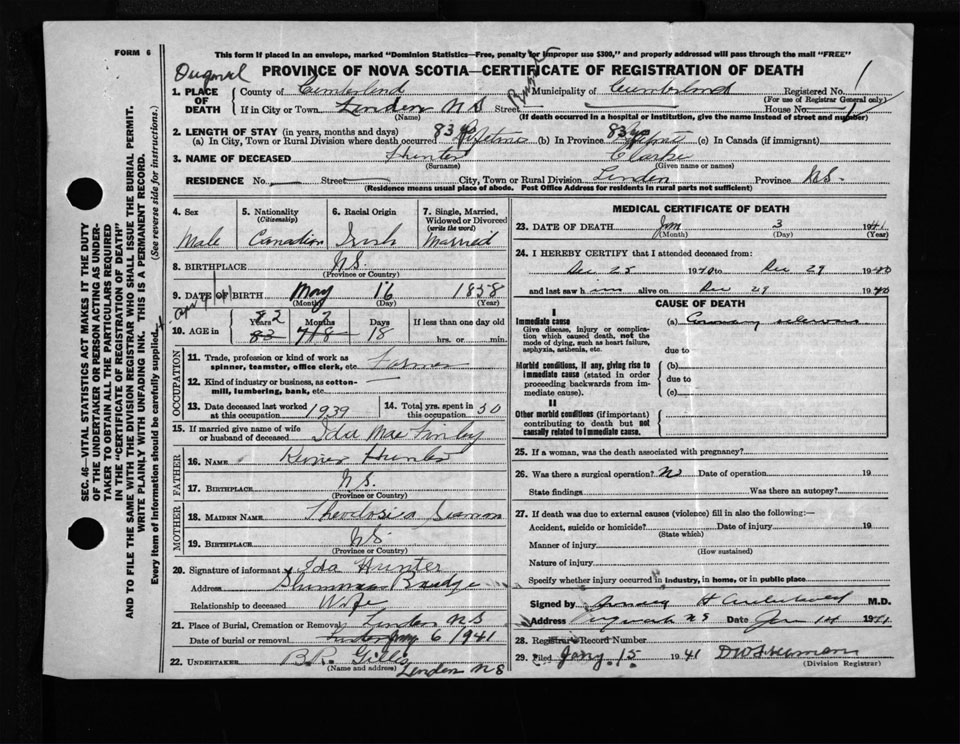 FORM 6
This form if placed in an envelope, marked "Dominion Statistics—Free, penalty for improper use $300," and properly addressed will pass through the mail "FREE"
PROVINCE OF NOVA SCOTIA—CERTIFICATE OF REGISTRATION OF DEATH
1. PLACE OF DEATH County of Cumberland Municipality of Cumberland Registered No. 1
(For use of Registrar General only)
If in City or Town Linden N S Street House No.
(Name) (If death occurred in a hospital or institution, give the name instead of street and number)
2. LENGTH OF STAY (in years, months and days)
(a) In City, Town or Rural Division where death occurred 83 (b) In Province 83 (c) In Canada (if immigrant)
3. NAME OF DECEASED Hunter Clarke
(Surname) (Given name or names)
RESIDENCE No. — Street — City, Town or Rural Division Linden Province N.S.
(Residence means usual place of abode. Post Office Address for residents in rural parts not sufficient)
4. Sex 5. Nationality (Citizenship) 6. Racial Origin 7. Single, Married, Widowed or Divorced (write the word)
Male Canadian Irish Married
8. BIRTHPLACE N.S.
(Province or Country)
9. DATE OF BIRTH May 16 1858
(Month) (Day) (Year)
10. AGE in Years 82 Months Days 18 If less than one day old hrs. or min.
OCCUPATION
11. Trade, profession or kind of work as spinner, teamster, office clerk, etc. Farmer
12. Kind of industry or business, as cotton-mill, lumbering, bank, etc. —
13. Date deceased last worked at this occupation 1939 14. Total yrs. spent in this occupation 50
15. If married give name of wife or husband of deceased Ida Mae Finley
FATHER
16. NAME Hunter
17. BIRTHPLACE N.S.
(Province or Country)
MOTHER
18. MAIDEN NAME Theodosia Seaman
19. BIRTHPLACE N.S.
(Province or Country)
20. Signature of informant Ida Hunter
Address Shinimicas Bridge
Relationship to deceased Wife
21. Place of Burial, Cremation or Removal Linden N S
Date of burial or removal Jany 6 1941
22. UNDERTAKER B.R. Gillis Linden N S
(Name and address)
MEDICAL CERTIFICATE OF DEATH
23. DATE OF DEATH Jan 3 1941
(Month) (Day) (Year)
24. I HEREBY CERTIFY that I attended deceased from:
Dec 25 1940 to Dec 29 1940
and last saw him alive on Dec 29 1940
CAUSE OF DEATH
I
Immediate cause (a)
Give disease, injury or complication which caused death, not the mode of dying, such as heart failure, asphyxia, asthenia, etc.
due to
Morbid conditions, if any, giving rise to immediate cause (stated in order proceeding backwards from immediate cause).
(b)
due to
(c)
II
Other morbid conditions (if important) contributing to death but not causally related to immediate cause.
25. If a woman, was the death associated with pregnancy?
26. Was there a surgical operation? No Date of operation 19
State findings Was there an autopsy?
27. If death was due to external causes (violence) fill in also the following:
Accident, suicide or homicide? Date of injury 19
(State which)
Manner of injury
(How sustained)
Nature of injury
Specify whether injury occurred in industry, in home, or in public place
Signed by M.D.
Address Pugwash N S Date Jan 14 1941
28. Registrar's Record Number
29. Filed Jany. 15 1941
(Division Registrar)
SEC. 46—VITAL STATISTICS ACT MAKES IT THE DUTY OF THE UNDERTAKER OR PERSON ACTING AS UNDERTAKER TO OBTAIN ALL THE PARTICULARS REQUIRED IN THE "CERTIFICATE OF REGISTRATION OF DEATH" AND TO FILE THE SAME WITH THE DIVISION REGISTRAR WHO SHALL ISSUE THE BURIAL PERMIT.
WRITE PLAINLY WITH UNFADING INK. THIS IS A PERMANENT RECORD.
Every item of information should be carefully supplied. (See reverse side for instructions.)